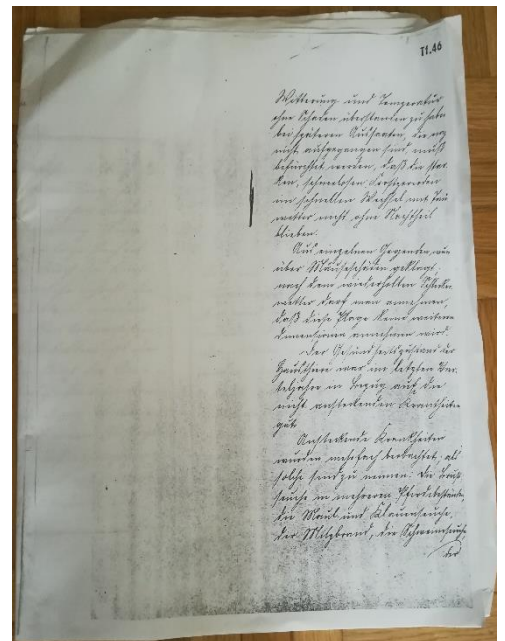 T1.46
Witterung und Temperatur
ohne Schaden überstanden zu haben
bei späteren Aussaaten, die noch
nicht aufgegangen sind, muß
befürchtet werden, daß die star
ken, schneelosen Frostperioden
im schnellen Wechsel mit Tau
wetter nicht ohne Nachtheil
blieben.
Aus einzelnen Gegenden wird
über Mäuseschäden geklagt,
nach dem wiederholten
wetter darf man annehmen,
daß diese Plage keine weiteren
Dimensionen annehmen wird.
Der Gesundheitszustand der
Hausthiere war im letzten Vier
teljahre in Bezug auf die
nicht ansteckenden Krankheiten
gut.
Ansteckende Krankheiten
wurden mehrfach beobachtet, als
solche sind zu nennen: die Brust
seuche in mehreren Pferdebeständen,
die Maul und Klauenseuche,
der Milzbrand, die Schweineseuche,
der